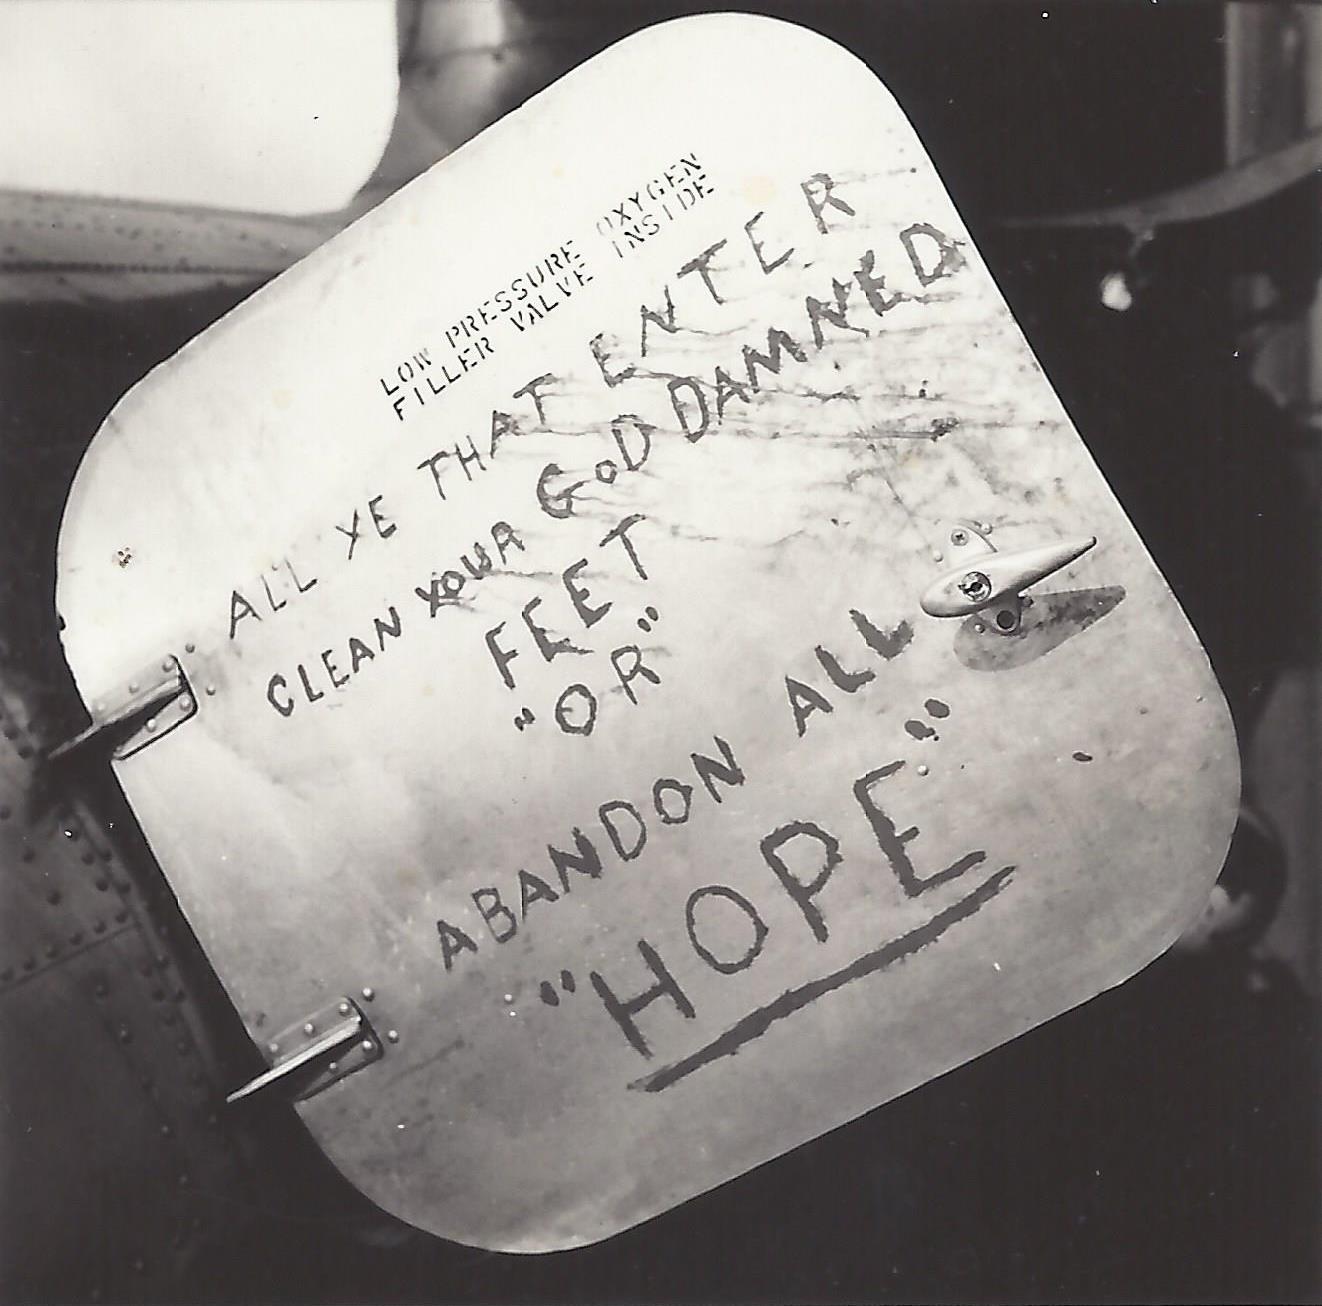 LOW PRESSURE OXYGEN
FILLER VALVE INSIDE
ALL YE THAT ENTER
CLEAN YOUR GOD DAMNED
FEET
"OR"
ABANDON ALL
"HOPE"